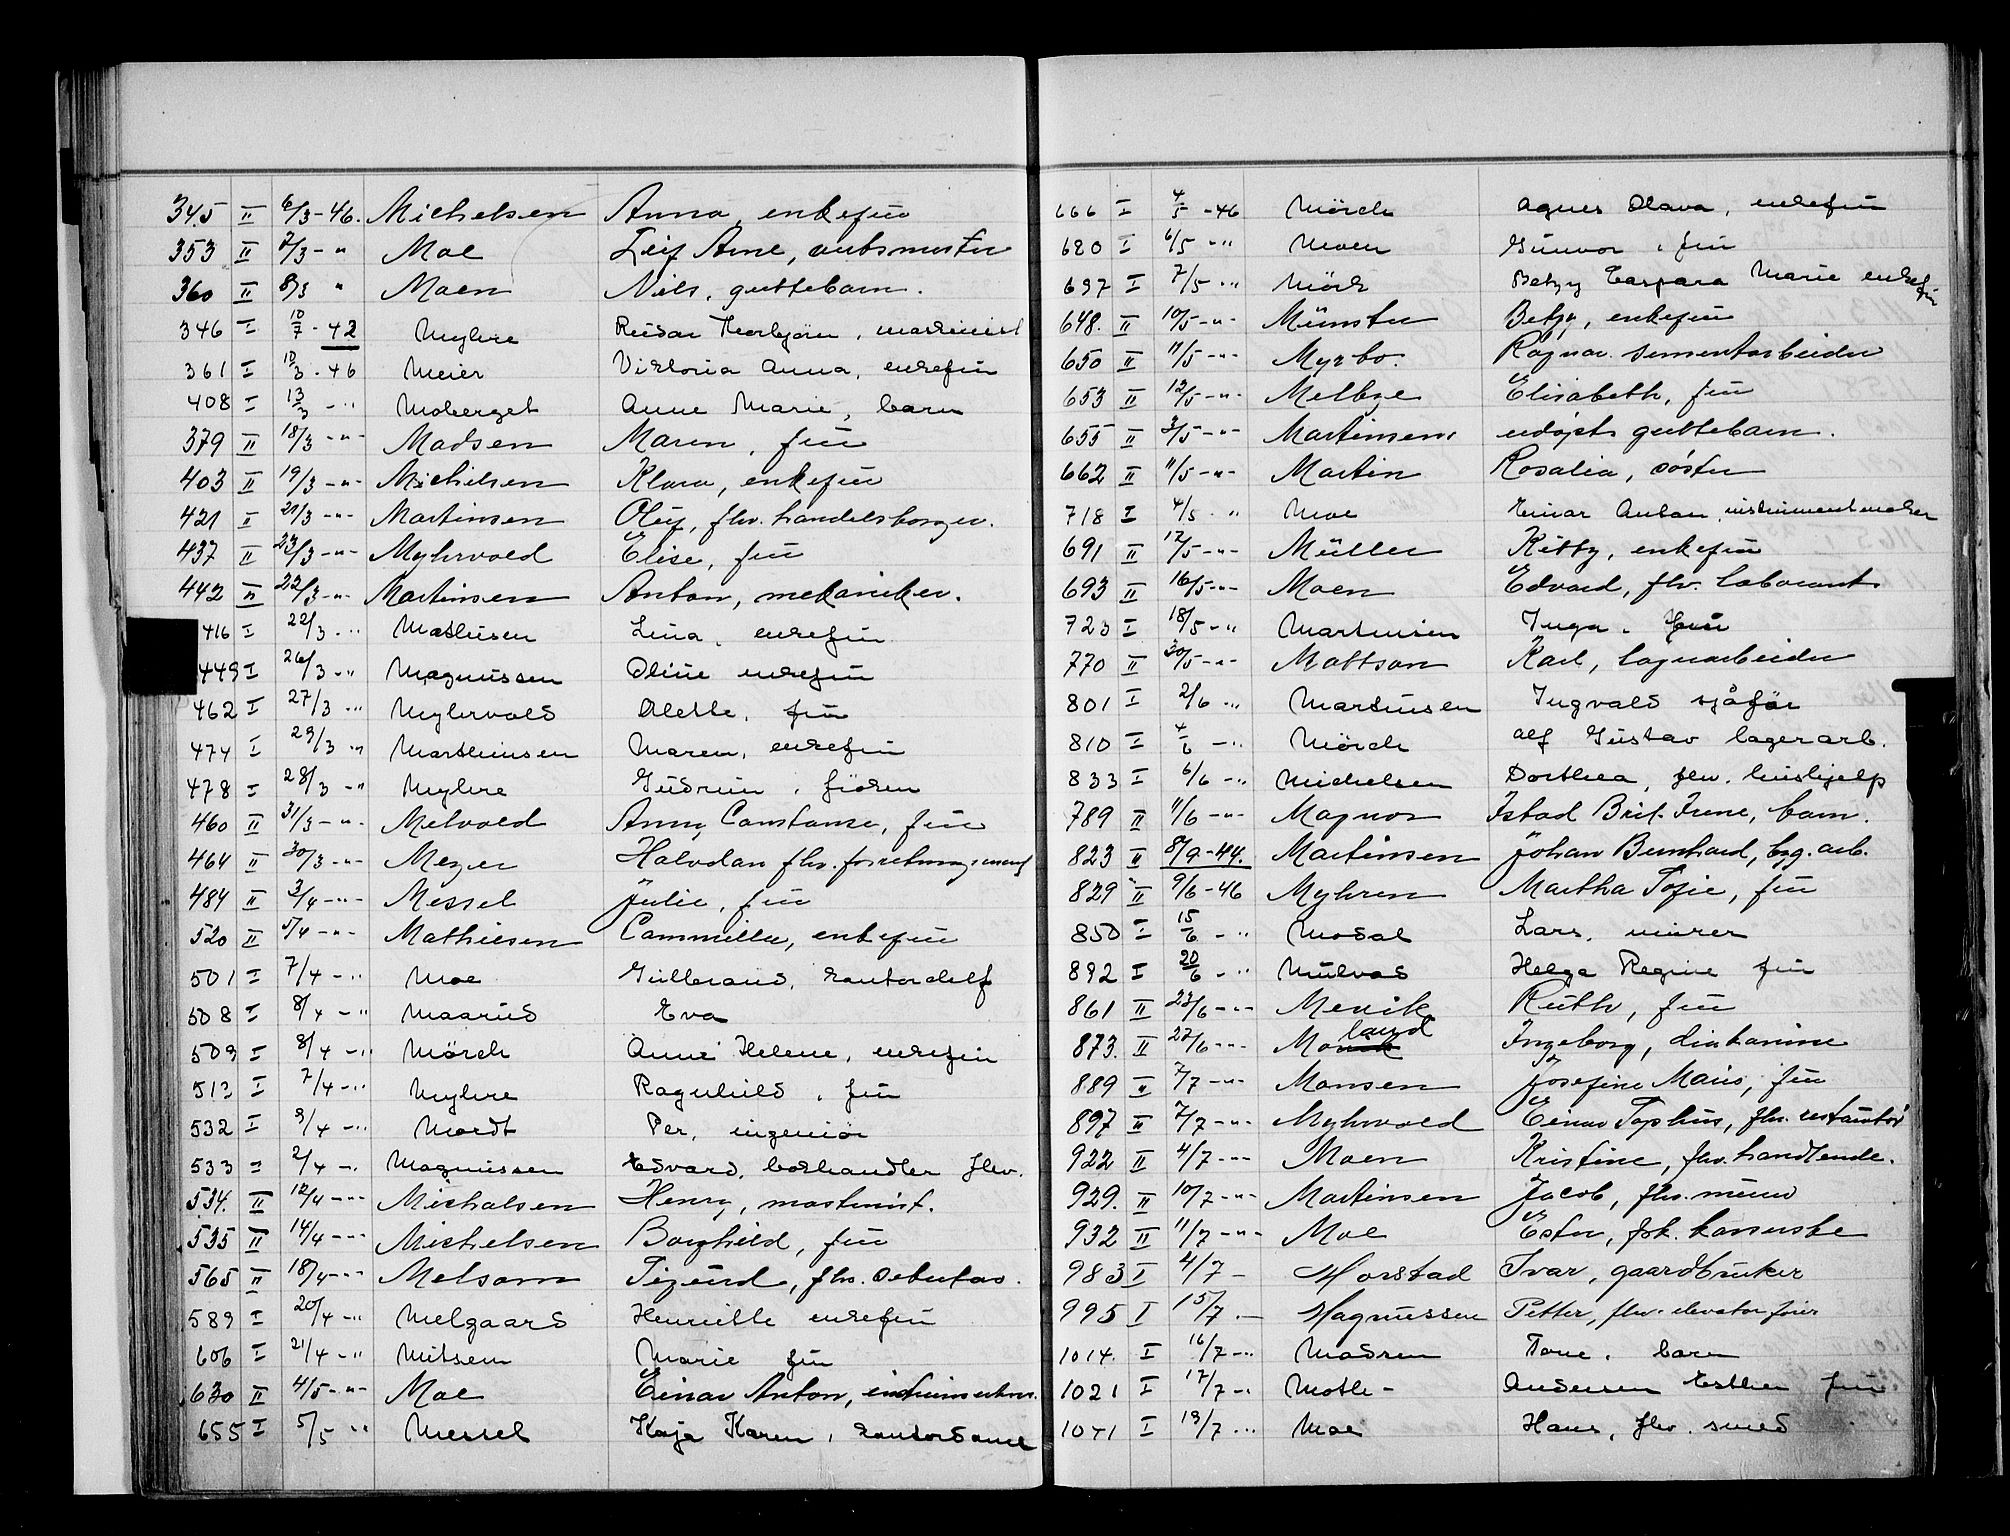 345 II 6/3-46. Michelsen Anna, enkefru
353 II 7/3-" Moe Leif Arne,
360 II 8/3 " Moen Nils, guttebarn.
346 I 10/7-42 Myhre Reidar Thorbjörn, maskinist
361 I 10/3-46 Meier Viktoria Anna, enkefru
408 I 13/3-" Moberget Anne Marie, barn
379 II 18/3-"- Madsen Maren, fru
403 II 19/3-"- Michelsen Klara, enkefru
421 II 21/3-"- Martinsen Oluf, fhv. handelsborger.
437 II 23/3-"- Myhrvold Elise, fru
442 II 22/3-"- Martinsen Anton, mekaniker.
416 I 22/3-" Mathisen Lina, enkefru
449 I 26/3-" Magnussen Oline enkefru
462 I 27/3-" Myhrvold Alette, fru
474 I 29/3-" Marthinsen Maren, enkefru
478 I 28/3-" Myhre Gudrun, fröken
460 II 31/3-"- Melvold Anny Constanse, fru
464 II 30/3-"- Meyer Halvdan fhv.
484 II 3/4-"- Messel Julie, fru
520 II 5/4-"- Mathiesen Cammilla, enkefru
501 I 7/4-" Moe Gulbrand, kontordelf
508 I 8/4-" Maarud Eva
509 I 8/4-" Mörch Anne Helene, enkefru
512 I 7/4-" Myhre Ragnhild, fru
532 I 9/4-" Mordt Per, ingeniör
533 I 2/4-" Magnussen Edvard, bokhandler fhv.
534. II 12/4-"- Michalsen Henry, maskinist.
535 II 14/4-"- Michelsen Borghild, fru
565 II 18/4-"- Melsom Sigurd, fhv.
589 I 20/4-" Melgaard Henriette enkefru
606 I 21/4-" Milsem Marie fru
630 II 4/5-"- Moe Einar Anton,
655 I 5/5 " Messel Kaja Karen, kontordame
666 I 4/5-46 Mörch Agnes Olava, enkefru
680 I 6/5-" Moen Gunvor, fru
697 I 7/5-" Mörk Betzy Caspara Marie enkefru
648. II 10/5-"- Münster Betzy, enkefru
650 II 11/5-"- Myrbo. Ragnar. sementarbeider
653 II 12/5-"- Melbye Elisabeth, fru
655 II 3/5-"- Martinsens udöpt guttebarn.
662 II 11/5-"- Martin Rosalia, söster
718 I 4/5-" Moe Einar Anton, instrumentmaker
691 II 12/5-"- Müller Kitty, enkefru
693 II 16/5-"- Moen Edvard, fhv. laborant
723 I 18/5-" Martinsen Inga, fru
770 II 30/5-"- Mattson Karl, lagerarbeider
801 I 2/6-" Martinsen Ingvald sjåför
810 I 4/6-" Mörch Alf Gustav lagerarb.
833 I 6/6-" Michelsen Dorthea, fhv. hushjelp
789 II 11/6-"- Magnor Istad Brit Irene, barn.
823 II 8/9-44. Martinsen Johan Bernhard, byg. arb.
829 II 9/6-46 Myhren Martha Sofie, fru
850 I 15/6-" Modal Lars, murer
892 I 20/6-" Mulvad Helga Regine fru
861 II 23/6-"- Mevik Ruth, fru
873. II 27/6-"- Moland Ingeborg, diakonisse
889 II 7/7-"- Monsen Josefine Marie, fru
897 II 7/7-"- Myhrvold Einar Sophus, fhv. restauratör
922 II 4/7-"- Moen Kristine, fhv. handlende.
929. II 10/7-"- Martinsen Jacob, fhv. murer
932 II 11/7-"- Moe Ester, fhv.
983 I 4/7- Morstad Ivar, gaardbruker
995 I 15/7- Magnussen Petter, fhv. elevatorförer
1014. I 16/7-" Madsen Tone, barn
1021 I 17/7-" Motte- Andersen Esther fru
1041 I 19/7-" Moe Hans, fhv. smed